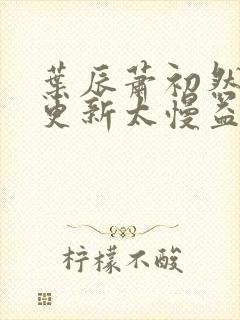 葉辰蕭初然
更新太慢盜
柠檬不酸